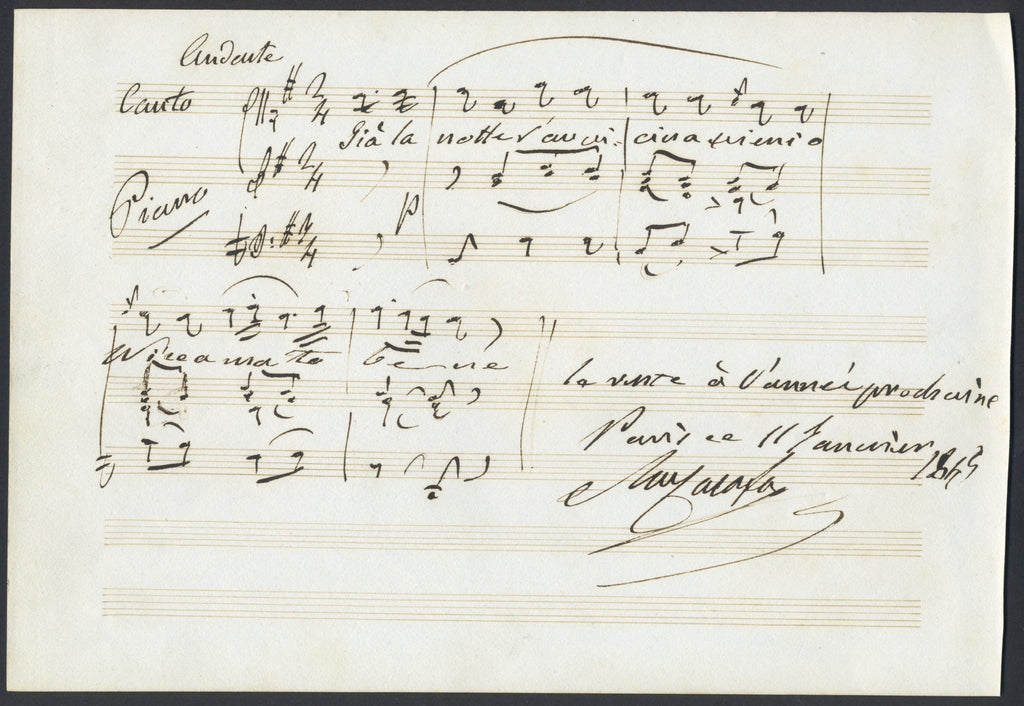 Andante
Canto
Già la notte s'avvicina vieni o
Piano
p
Nice amato bene
la suite à l'année prochaine
Paris ce 11 Janvier 1845